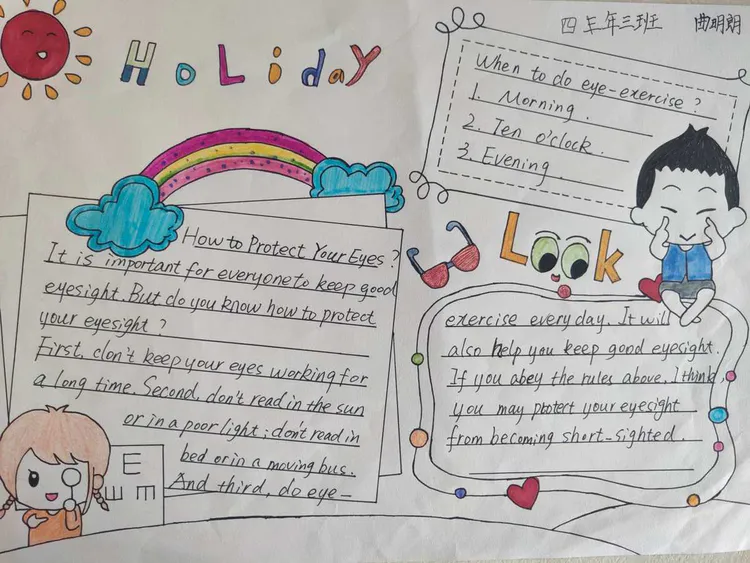 四年三班 曲明朗
HoLidaY
When to do eye-exercise?
1. Morning.
2. Ten o'clock.
3. Evening.
How to Protect Your Eyes?
It is important for everyone to keep good
eyesight. But do you know how to protect
your eyesight?
First, don't keep your eyes working for
a long time. Second, don't read in the sun
or in a poor light; don't read in
bed or in a moving bus.
And third, do eye-
E
Look
exercise every day. It will
also help you keep good eyesight.
If you abey the rules above, I think,
you may protect your eyesight
from becoming short-sighted.